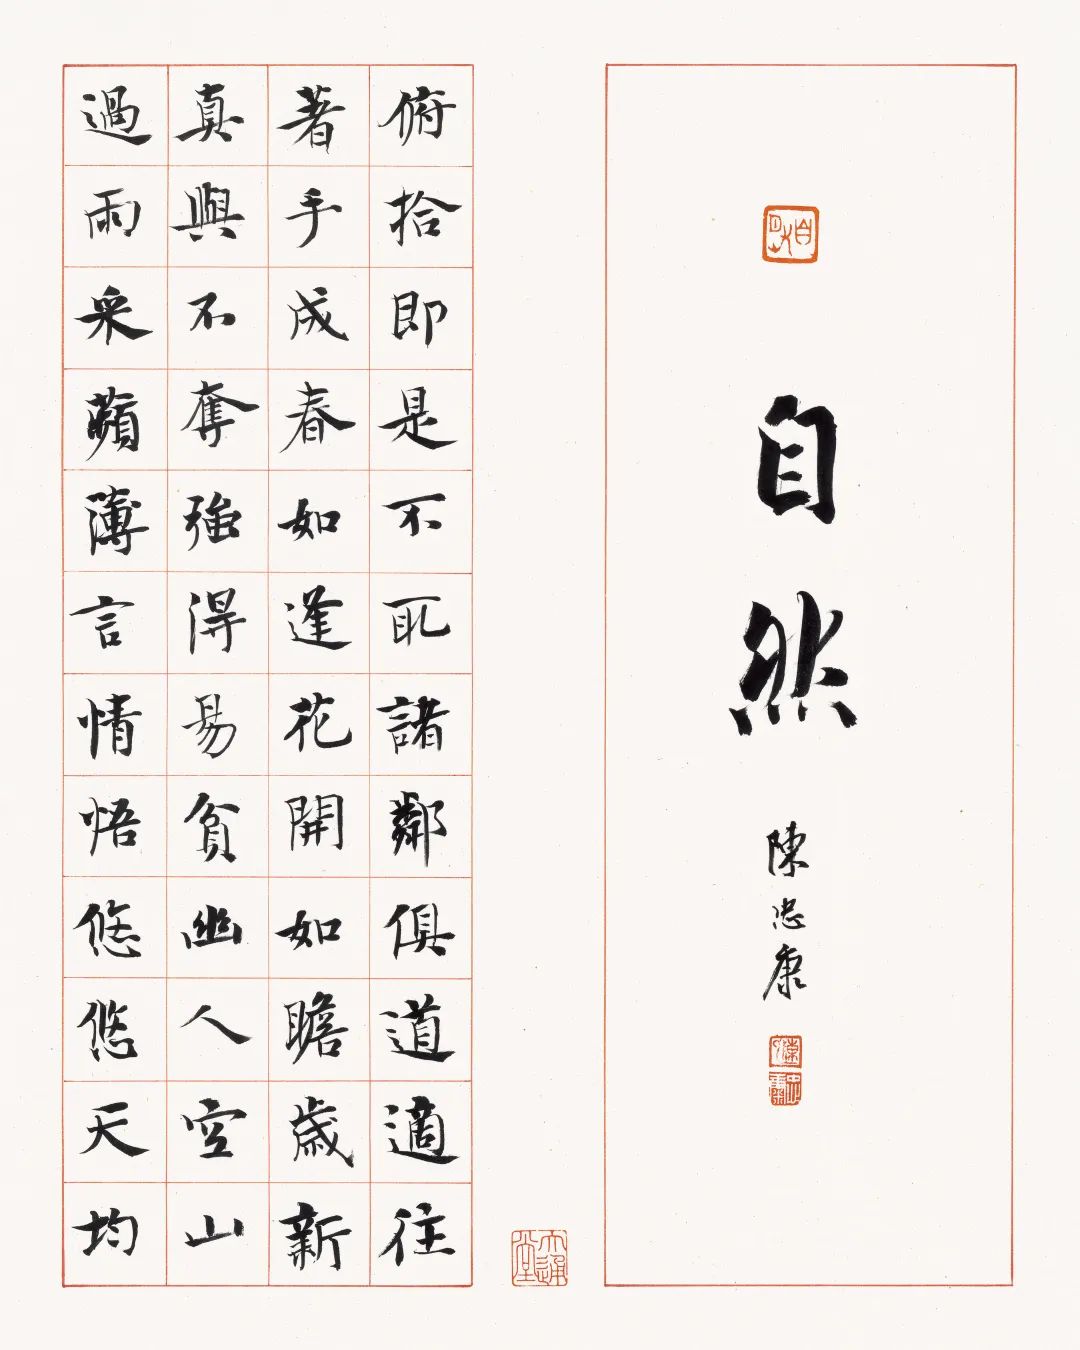 自然
陳忠康
俯拾即是不取諸鄰俱道適往
著手成春如逢花開如瞻歲新
真與不奪強得易貧幽人空山
過雨采蘋薄言情悟悠悠天均